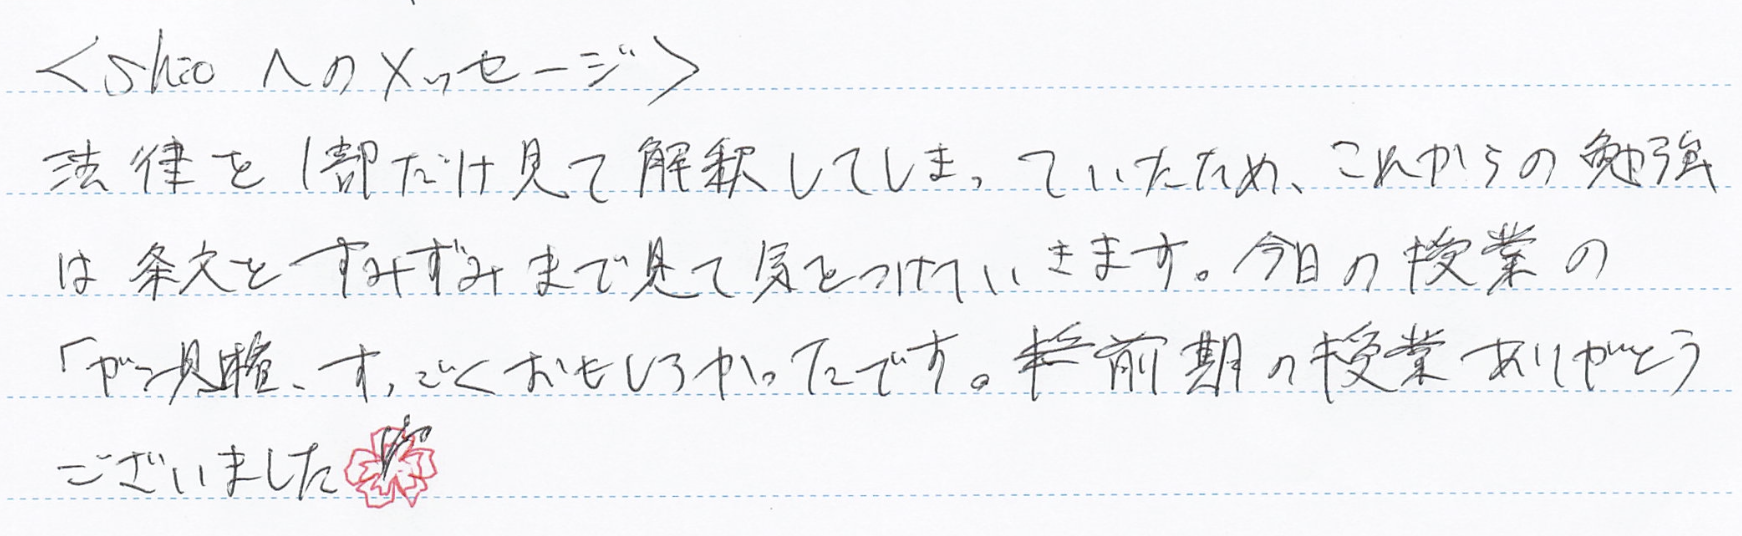 <Shioへのメッセージ>
法律を1部だけ見て解釈してしまっていたため、これからの勉強
は条文をすみずみまで見て気をつけていきます。今日の授業の
、すっごくおもしろかったです。前期の授業ありがとう
ございました